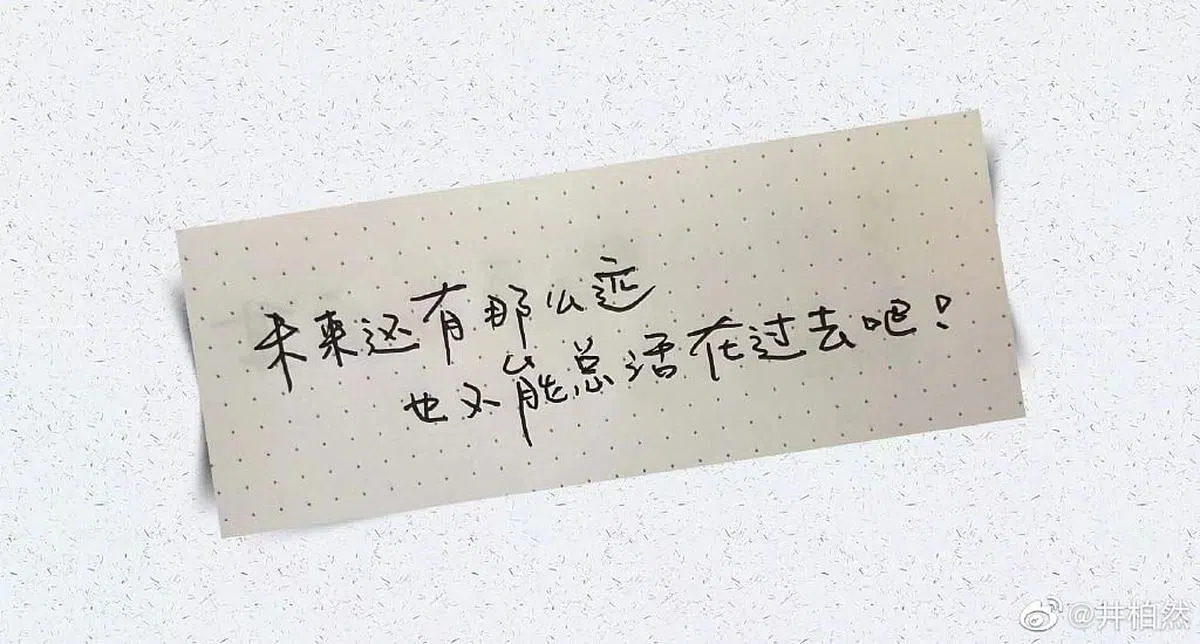 未来还有那么远
也不能总活在过去吧！
@井柏然